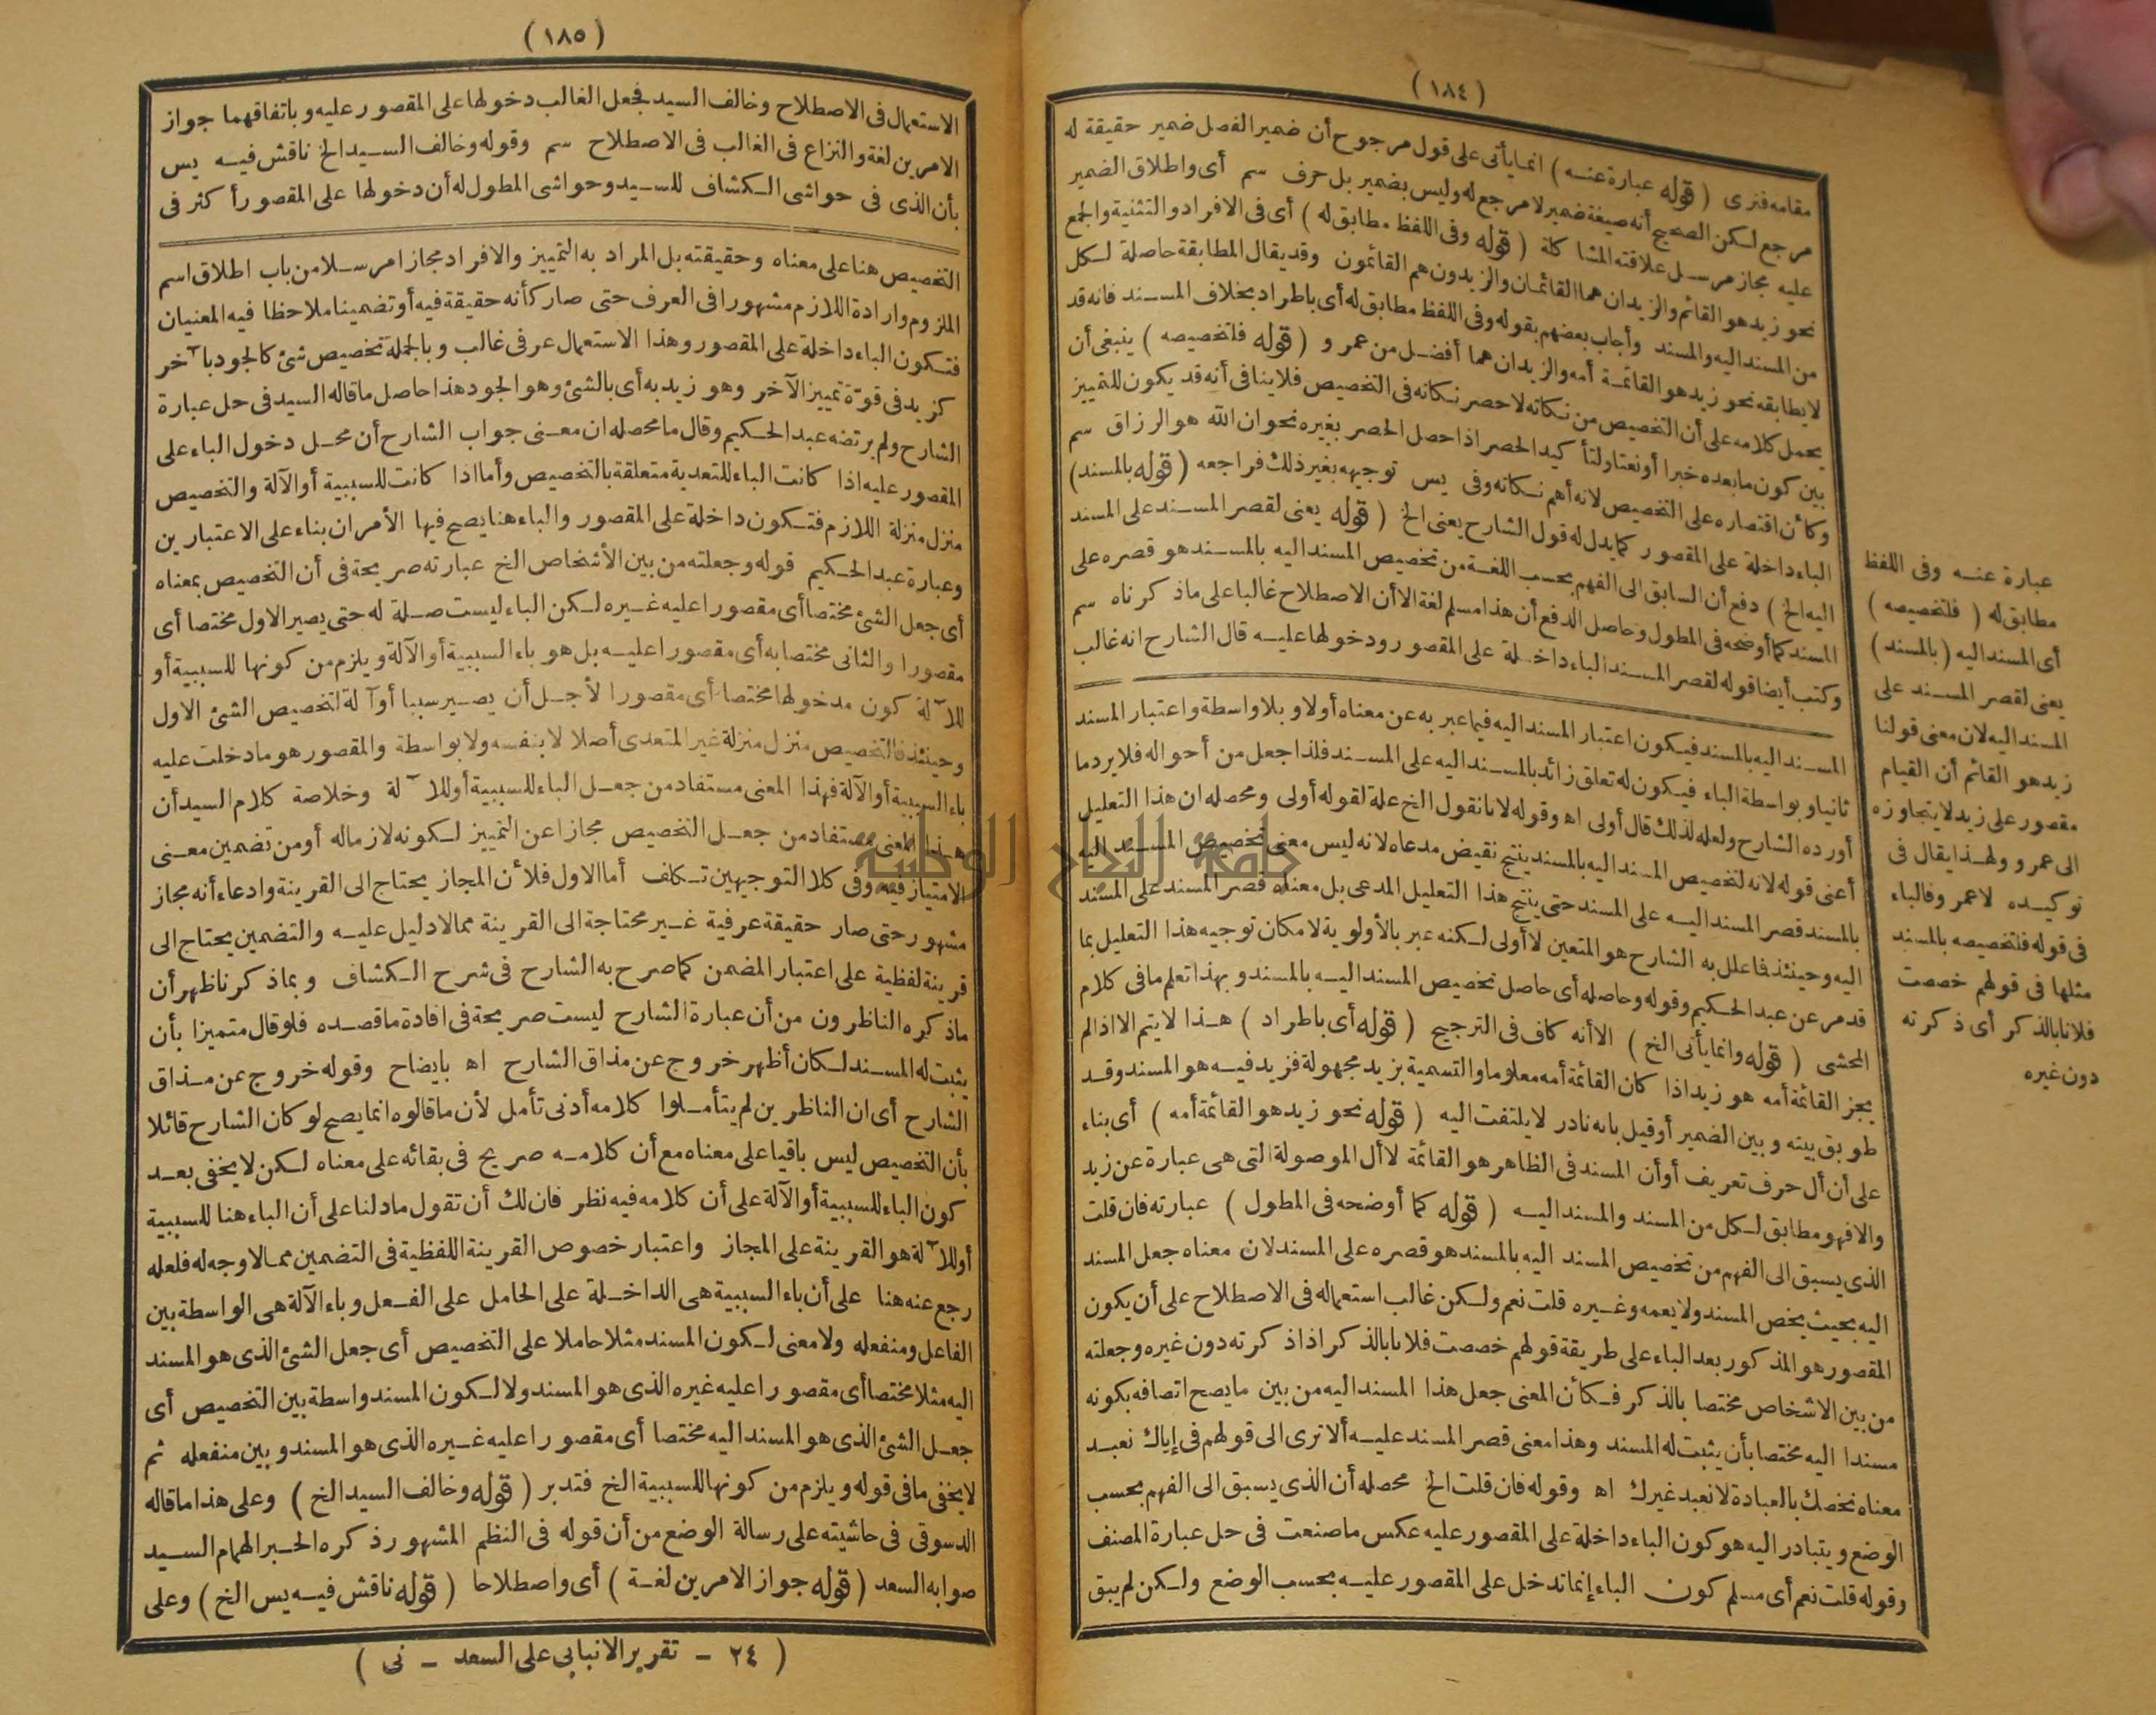 (١٨٤)
مقامه فنرى (قوله عبارة عنه) انما يأتى على قول مرجوح أن ضمير الفصل ضمير حقيقة له
مرجع لكن الصحيح أنه صيغة ضمير لا مرجع له وليس بضمير بل حرف سم أى واطلاق الضمير
عليه مجاز مرسل علاقته المشاكلة (قوله وفى اللفظ مطابق له) أى فى الافراد والتثنية والجمع
نحو زيد هو القائم والزيدان هما القائمان والزيدون هم القائمون وقد يقال المطابقة حاصلة لكل
من المسند اليه والمسند وأجاب بعضهم بقوله وفى اللفظ مطابق له أى باطراد بخلاف المسند فانه قد
لا يطابقه نحو زيد هو القائمة أمه والزيدان هما أفضل من عمرو (قوله فلتخصيصه) ينبغى أن
يحمل كلامه على أن التخصيص من نكاته لا حصر نكاته فى التخصيص فلا ينافى أنه قد يكون للتمييز
بين كون ما بعده خبرا أو نعتا ولتأكيد الحصر اذا حصل الحصر بغيره نحو ان الله هو الرزاق سم
وكأن اقتصاره على التخصيص لانه أهم نكاته وفى يس توجيهه بغير ذلك فراجعه (قوله بالمسند)
الباء داخلة على المقصور كما يدل له قول الشارح يعنى الخ (قوله يعنى لقصر المسند على المسند
اليه الخ) دفع أن السابق الى الفهم بحسب اللغة من تخصيص المسند اليه بالمسند هو قصره على
المسند كما أوضحه فى المطول وحاصل الدفع أن هذا مسلم لغة الا أن الاصطلاح غالبا على ما ذكرناه سم
وكتب أيضا قوله لقصر المسند الباء داخلة على المقصور ودخولها عليه قال الشارح انه غالب
المسند اليه بالمسند فيكون اعتبار المسند اليه فيما عبر به عن معناه أولا وبلا واسطة واعتبار المسند
ثانيا وبواسطة الباء فيكون له تعلق زائد بالمسند اليه على المسند فلذا جعل من أحواله فلا يرد ما
أورده الشارح ولعله لذلك قال أولى اه وقوله لانا نقول الخ علة لقوله أولى ومحصله ان هذا التعليل
أعنى قوله لانه لتخصيص المسند اليه بالمسند ينتج نقيض مدعاه لانه ليس معنى تخصيص المسند اليه
بالمسند قصر المسند اليه على المسند حتى ينتج هذا التعليل المدعى بل معناه قصر المسند على المسند
اليه وحينئذ فاعلل به الشارح هو المتعين لا أولى لكنه عبر بالأولوية لامكان توجيه هذا التعليل بما
قد مر عن عبد الحكيم وقوله وحاصله أى حاصل تخصيص المسند اليه بالمسند وبهذا تعلم ما فى كلام
المحشى (قوله وانما يأتى الخ) الا أنه كاف فى الترجيح (قوله أى باطراد) هذا لا يتم الا اذا لم
يجز القائمة أمه هو زيد اذا كان القائمة أمه معلوما والتسمية بزيد مجهولة فزيد فيه هو المسند وقد
طوبق بينه وبين الضمير أو قيل بانه نادر لا يلتفت اليه (قوله نحو زيد هو القائمة أمه) أى بناء
على أن أل حرف تعريف أو أن المسند فى الظاهر هو القائمة لا أل الموصولة التى هى عبارة عن زيد
والا فهو مطابق لكل من المسند والمسند اليه (قوله كما أوضحه فى المطول) عبارته فان قلت
الذى يسبق الى الفهم من تخصيص المسند اليه بالمسند هو قصره على المسند لان معناه جعل المسند
اليه بحيث يخص المسند ولا يعمه وغيره قلت نعم ولكن غالب استعماله فى الاصطلاح على أن يكون
المقصور هو المذكور بعد الباء على طريقة قولهم خصصت فلانا بالذكر اذا ذكرته دون غيره وجعلته
من بين الاشخاص مختصا بالذكر فكأن المعنى جعل هذا المسند اليه من بين ما يصح اتصافه بكونه
مسندا اليه مختصا بأن يثبت له المسند وهذا معنى قصر المسند عليه ألا ترى الى قولهم فى إياك نعبد
معناه نخصك بالعبادة لا نعبد غيرك اه وقوله فان قلت الخ محصله أن الذى يسبق الى الفهم بحسب
الوضع ويتبادر اليه هو كون الباء داخلة على المقصور عليه عكس ما صنعت فى حل عبارة المصنف
وقوله قلت نعم أى مسلم كون الباء إنما تدخل على المقصور عليه بحسب الوضع ولكن لم يبق
عبارة عنه وفى اللفظ
مطابق له (فلتخصيصه)
أى المسند اليه (بالمسند)
يعنى لقصر المسند على
المسند اليه لان معنى قولنا
زيد هو القائم أن القيام
مقصور على زيد لا يتجاوزه
الى عمرو ولهذا يقال فى
توكيده لا عمرو فالباء
فى قوله فلتخصيصه بالمسند
مثلها فى قولهم خصصت
فلانا بالذكر أى ذكرته
دون غيره
(١٨٥)
الاستعمال فى الاصطلاح وخالف السيد فجعل الغالب دخولها على المقصور عليه وباتفاقهما جواز
الامرين لغة والنزاع فى الغالب فى الاصطلاح سم وقوله وخالف السيد الخ ناقش فيه يس
بأن الذى فى حواشى الكشاف للسيد وحواشى المطول له أن دخولها على المقصور أكثر فى
التخصيص هنا على معناه وحقيقته بل المراد به التمييز والافراد مجازا مرسلا من باب اطلاق اسم
الملزوم وارادة اللازم مشهورا فى العرف حتى صار كأنه حقيقة فيه أو تضمينا ملاحظا فيه المعنيان
فتكون الباء داخلة على المقصور وهذا الاستعمال عرفى غالب وبالجملة تخصيص شئ كالجود بآخر
كزيد فى قوّة تمييز الآخر وهو زيد به أى بالشئ وهو الجود هذا حاصل ما قاله السيد فى حل عبارة
الشارح ولم يرتضه عبد الحكيم وقال ما محصله ان معنى جواب الشارح أن محل دخول الباء على
المقصور عليه اذا كانت الباء للتعدية متعلقة بالتخصيص وأما اذا كانت للسببية أو الآلة والتخصيص
منزل منزلة اللازم فتكون داخلة على المقصور والباء هنا يصح فيها الأمران بناء على الاعتبارين
وعبارة عبد الحكيم قوله وجعلته من بين الأشخاص الخ عبارته صريحة فى أن التخصيص بمعناه
أى جعل الشئ مختصا أى مقصورا عليه غيره لكن الباء ليست صلة له حتى يصير الاول مختصا أى
مقصورا والثانى مختصا به أى مقصورا عليه بل هو باء السببية أو الآلة ويلزم من كونها للسببية أو
للآلة كون مدخولها مختصا أى مقصورا لأجل أن يصير سببا أو آلة لتخصيص الشئ الاول
وحينئذ فالتخصيص منزل منزلة غير المتعدى أصلا لا بنفسه ولا بواسطة والمقصور هو ما دخلت عليه
باء السببية أو الآلة فهذا المعنى مستفاد من جعل الباء للسببية أو للآلة وخلاصة كلام السيد أن
هذا المعنى مستفاد من جعل التخصيص مجازا عن التمييز لكونه لازما له أو من تضمين معنى
الامتياز فيه وفى كلا التوجيهين تكلف أما الاول فلأن المجاز يحتاج الى القرينة وادعاء أنه مجاز
مشهور حتى صار حقيقة عرفية غير محتاجة الى القرينة مما لا دليل عليه والتضمين يحتاج الى
قرينة لفظية على اعتبار المضمن كما صرح به الشارح فى شرح الكشاف وبما ذكرنا ظهر أن
ما ذكره الناظرون من أن عبارة الشارح ليست صريحة فى افادة ما قصده فلو قال متميزا بأن
يثبت له المسند لكان أظهر خروج عن مذاق الشارح اه بايضاح وقوله خروج عن مذاق
الشارح أى ان الناظرين لم يتأملوا كلامه أدنى تأمل لأن ما قالوه انما يصح لو كان الشارح قائلا
بأن التخصيص ليس باقيا على معناه مع أن كلامه صريح فى بقائه على معناه لكن لا يخفى بعد
كون الباء للسببية أو الآلة على أن كلامه فيه نظر فان لك أن تقول ما دلنا على أن الباء هنا للسببية
أو للآلة هو القرينة على المجاز واعتبار خصوص القرينة اللفظية فى التضمين مما لا وجه له فلعله
رجع عنه هنا على أن باء السببية هى الداخلة على الحامل على الفعل وباء الآلة هى الواسطة بين
الفاعل ومنفعله ولا معنى لكون المسند مثلا حاملا على التخصيص أى جعل الشئ الذى هو المسند
اليه مثلا مختصا أى مقصورا عليه غيره الذى هو المسند ولا لكون المسند واسطة بين التخصيص أى
جعل الشئ الذى هو المسند اليه مختصا أى مقصورا عليه غيره الذى هو المسند وبين منفعله ثم
لا يخفى ما فى قوله ويلزم من كونها للسببية الخ فتدبر (قوله وخالف السيد الخ) وعلى هذا ما قاله
الدسوقى فى حاشيته على رسالة الوضع من أن قوله فى النظم المشهور ذكره الحبر الهمام السيد
صوابه السعد (قوله جواز الامرين لغة) أى واصطلاحا (قوله ناقش فيه يس الخ) وعلى
(٢٤ - تقرير الانبابى على السعد - نى)
جامعة النجاح الوطنية